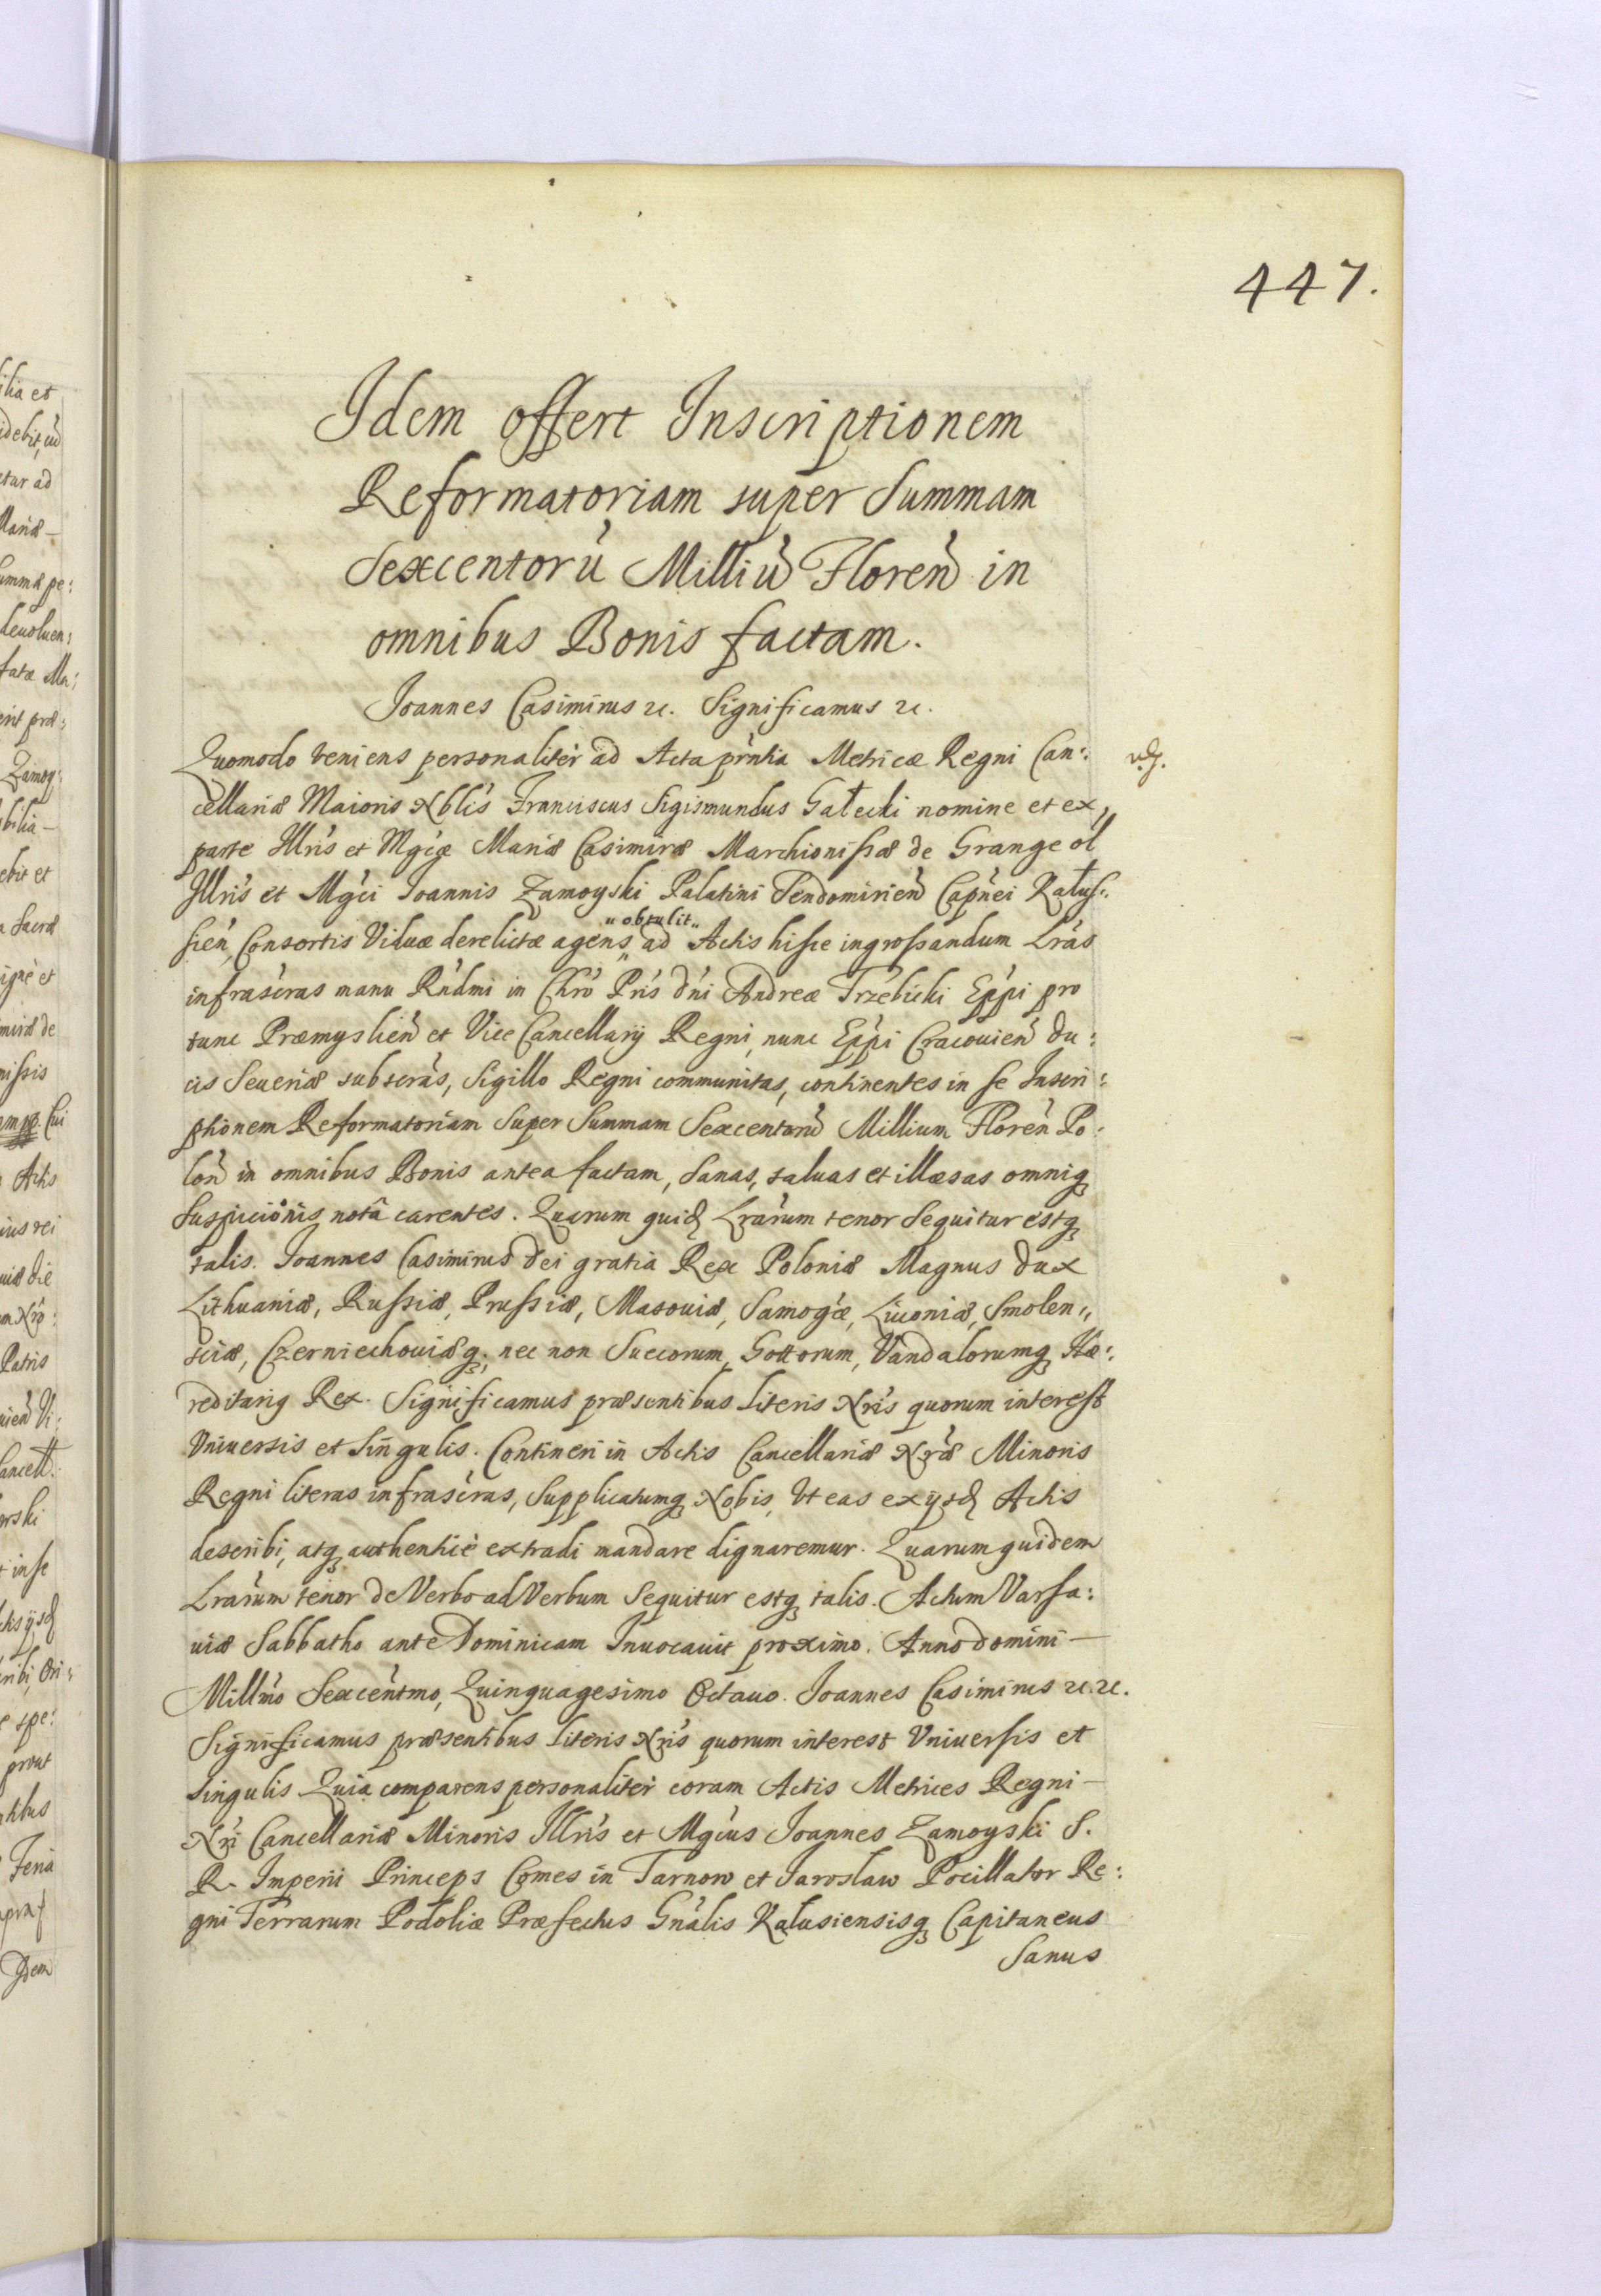 447.
Idem offert Inscriptionem
Reformatoriam super Summam
Sexcentorũ Milliũ Floreñ in
omnibus Bonis factam.
Joannes Casimirus etc. Significamus etc.
Quomodo veniens personalitèr ad Acta prñtia Metricæ Regni Can:
cellariæ Maioris Nblis Franciscus Sigismundus Gałecki nomine et ex
parte Illris et Mgcæ Mariæ Casimiræ Marchionissæ de Grange ol
Illris et Mgci Joannis Zamoyski Palatini Sendomirieñ Capnei Kałus:
sień, Consortis Viduæ derelictæ agens „obtulit„ ad Actis hisce ingrossandum Lras
infrascras manu Rndmi in Chro Pris dni Andreæ Trzebicki Eppi pro
tunc Præmyslień et Vice Cancellarij Regni, nunc Eppi Cracouień Du:
cis Seueriæ subscras, Sigillo Regni communitas, continentes in se Inscri:
ptionem Reformatoriam Super Summam Sexcentorũ Millium Floreñ Po:
loñ in omnibus Bonis antea factam, Sanas, saluas et illæsas omniq
Suspicionis notâ carentes. Quarum quid Lrarum tenor sequitur estq
talis. Joannes Casimirus Dei gratia Rex Poloniæ Magnus Dux
Lithuaniæ, Russiæ, Prussiæ, Masouiæ, Samogæ, Liuoniæ, Smolen:
sciæ, Czerniechouiæq; nec non Suecorum, Gottorum, Vandalorumq Hæ:
reditarig Rex. Significamus præsentibus literis Nris quorum interest
Vniuersis et Singulis. Contineri in Actis Cancellariæ Nræ Minoris
Regni literas infrascras, Supplicatumq Nobis, Vt eas ex ijsd Actis
describi, atq authenticè extradi mandare dignaremur. Quarum quidem
Lrarum tenor de Verbo ad Verbum Sequitur estq talis. Actum Varsa:
uiæ Sabbatho ante Dominicam Inuocauit proximo. Anno Domini —
Millmo Sexcentmo, Quinquagesimo Octauo. Joannes Casimirus etc. etc.
Significamus præsentibus literis Nris quorum interest Vniuersis et
singulis Quia comparens personalitèr coram Actis Metrices Regni —
Nri Cancellariæ Minoris Illris et Mgcus Joannes Zamoyski S.
R. Imperii Princeps Comes in Tarnow et Jaroslaw Pocillator Re:
gni Terrarum Podoliæ Præfectus Gnalis Kałusiensisq Capitaneus
Sanus